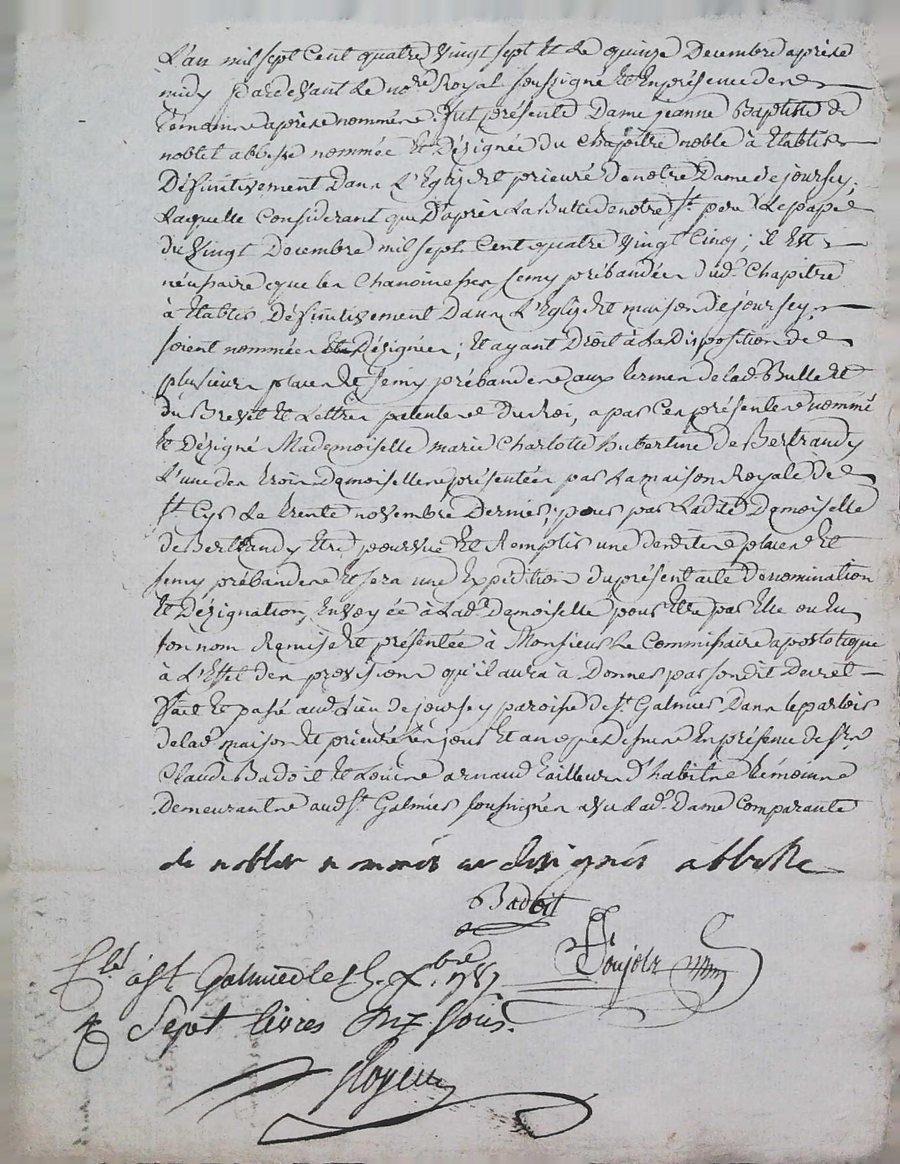 L'an mil sept Cent quatre vingt sept Et Le quinze Decembre après
midy pardevant Le no.re Royal soussigné Et En présence de
temoins après nommés. fut présente Dame jeanne Baptiste de
noblet abbesse nommée Et Désignée du chapitre noble à Etablir
Définitivement Dans L'Eglise Et prieuré De notre Dame de joursey;
Laquelle Considerant que D'après La Bulle de notre St. pere Le pape
du vingt Decembre mil sept Cent quatre vingt Cinq; il Est
nécessaire que les Chanoinesses semy prébandées dud. Chapitre
à Etablir Définitivement Dans L'Eglise Et maison De joursey,
soient nommées Et Désignées; Et ayant Droit à La Disposition de
plusieurs places de semy prébandes aux termes de lad. Bulle Et
du Brevet Et Lettres patentes Du Roi, a par Ces présentes nommé
Et Désigné Mademoiselle marie Charlotte hubertine de Bertrandy
L'une des trois Demoiselles présentées par La maison Royale de
St Cyr Le trente novembre Dernier, pour par Ladite Demoiselle
de Bertrandy Etre pourvue Et Remplir une desdites places Et
semy prébandes Et sera une Expédition du présent acte De nomination
Et Désignation, Envoyée à Lad. Demoiselle pour Etre par Elle ou En
son nom Remise Et présentée à Monsieur Le Commissaire apostolique
à L'Effet des provisions qu'il aura à Donner par son dit Decret
fait Et passé aud. Lieu de joursey paroisse de St. Galmier Dans le parloir
de lad. maison Et prieuré les jour Et an que Dessus En présence de Srs.
Claude Badoit Et Louis arnaud tailleurs D'habits témoins
Demeurants aud. St. Galmier soussignés avec lad. Dame Comparante
de noblet nommée et designée abbesse
Badoit
Soujols
à St Galmier le 15 Xbre 1787
Sept livres dix sous.